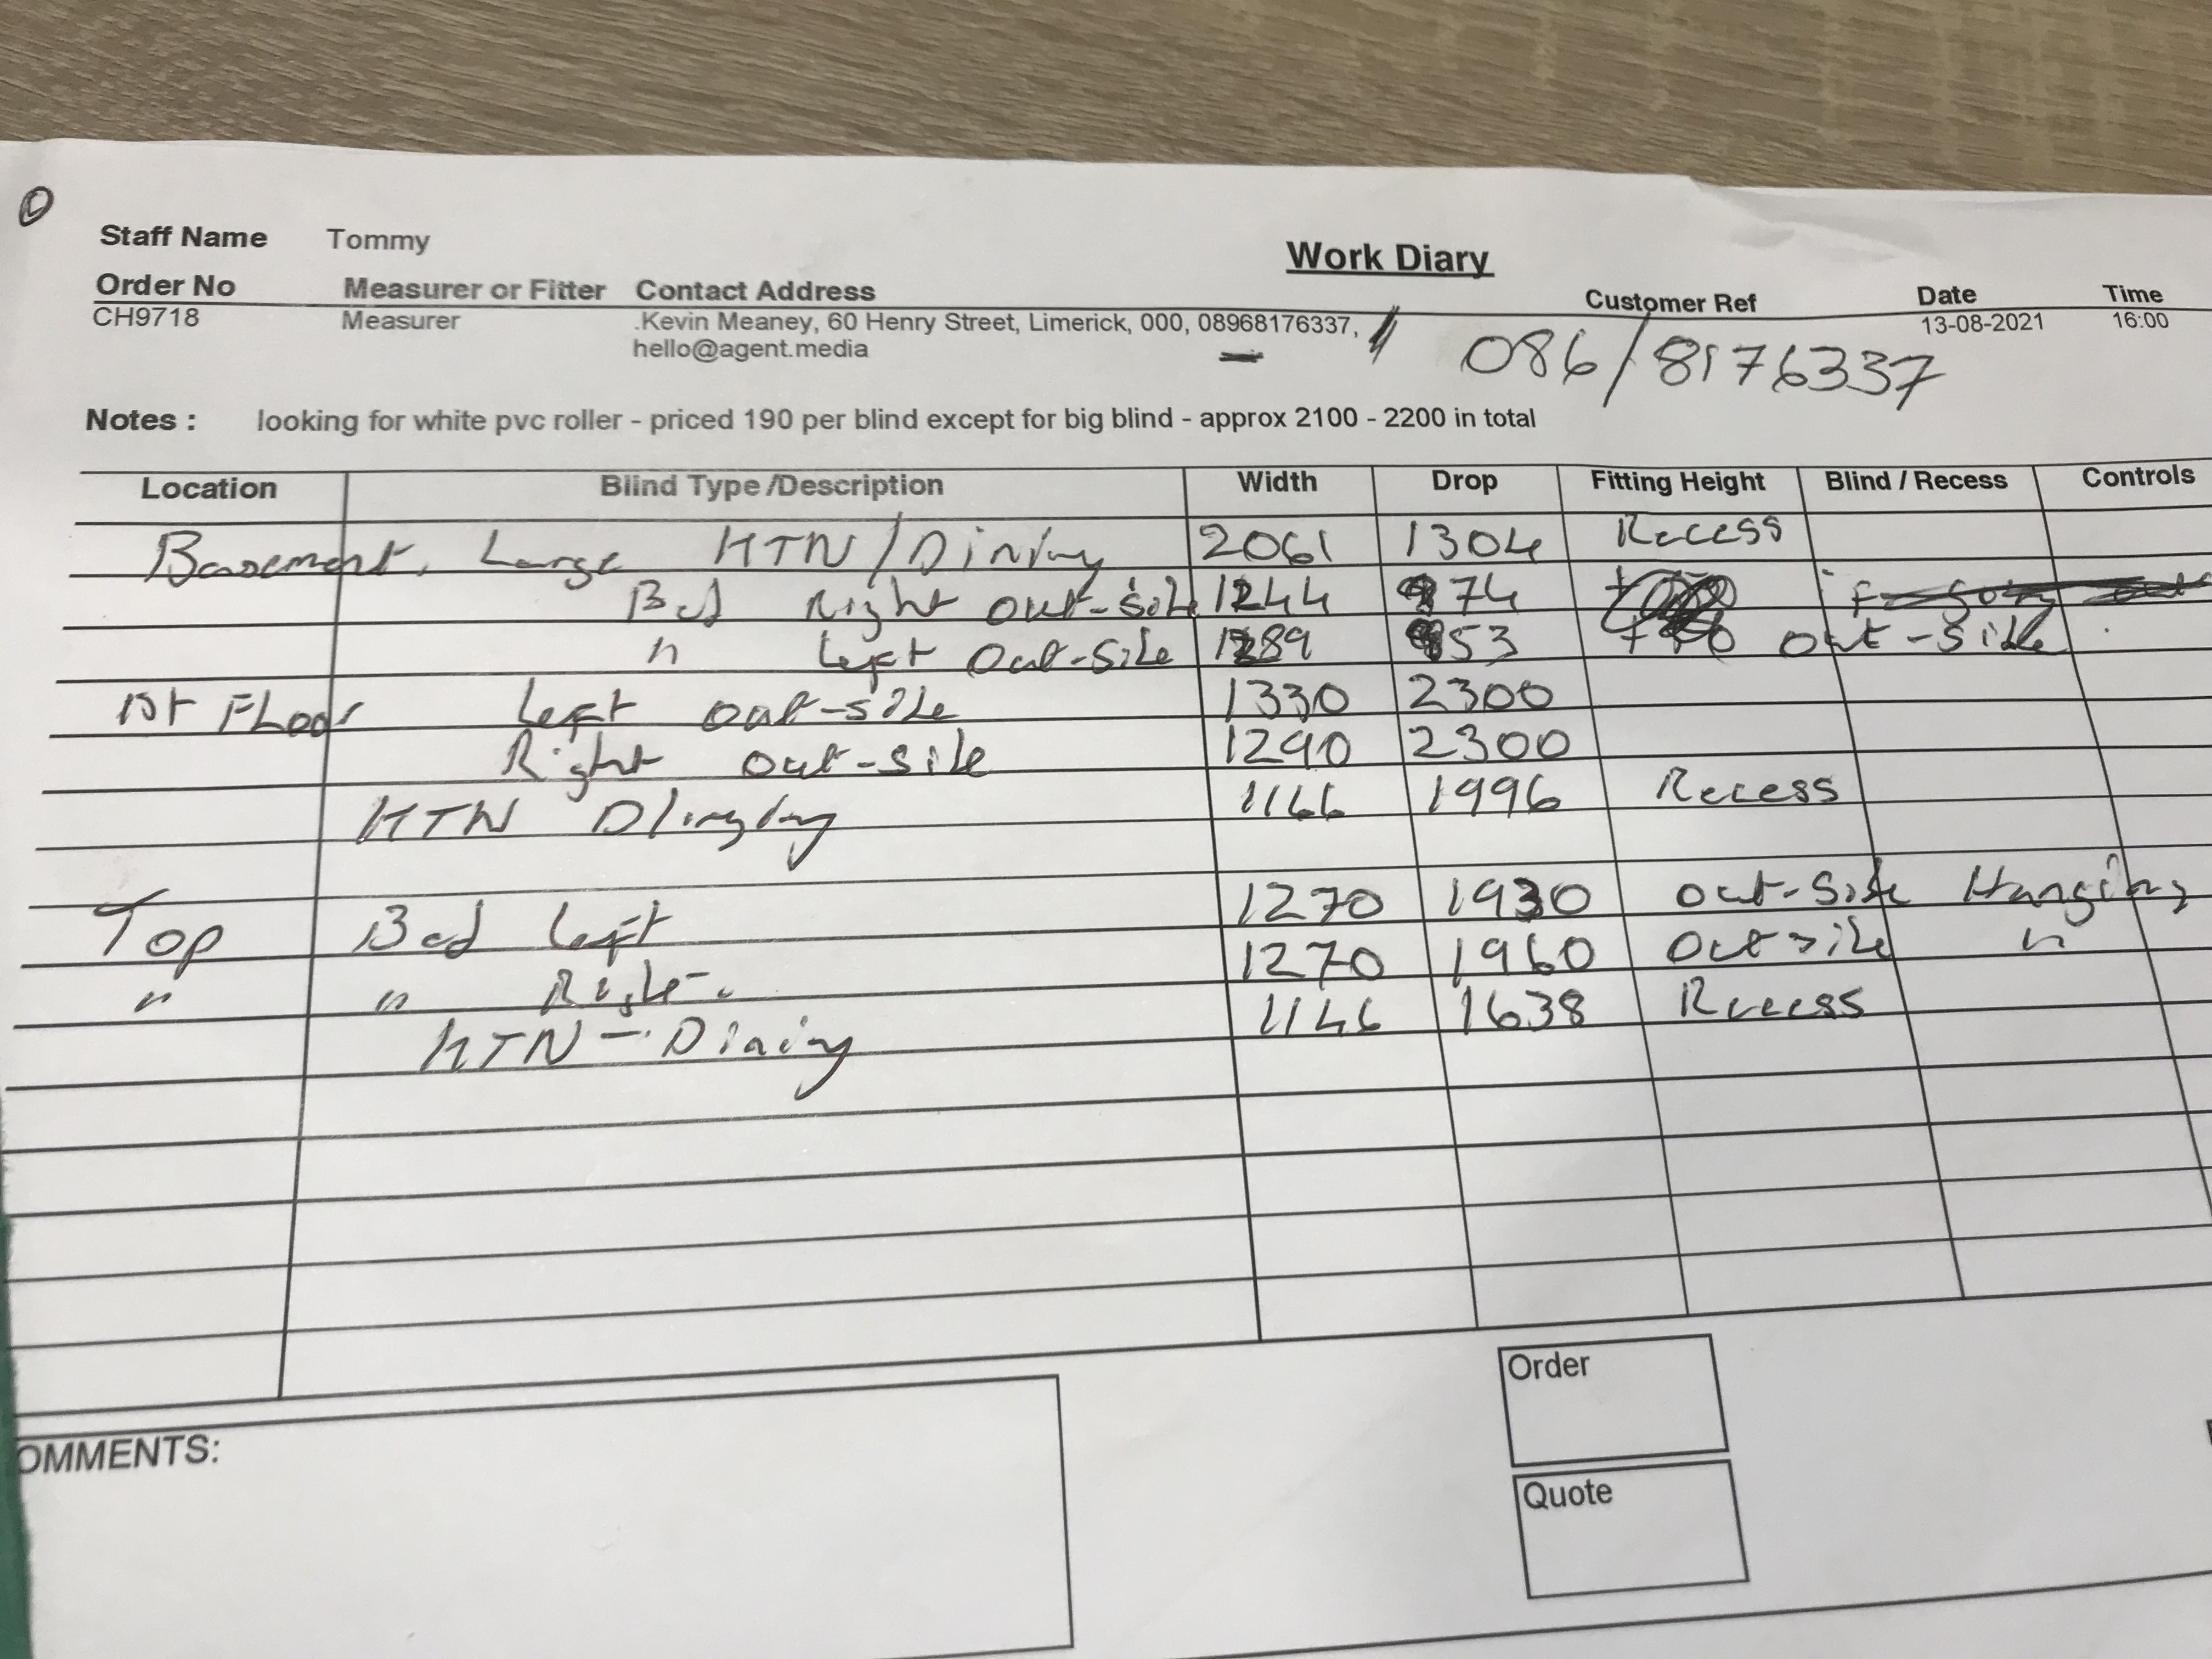 Staff Name Tommy
Work Diary
Order No Measurer or Fitter Contact Address Customer Ref Date Time
CH9718 Measurer .Kevin Meaney, 60 Henry Street, Limerick, 000, 08968176337, 13-08-2021 16:00
hello@agent.media 086/8176337
Notes : looking for white pvc roller - priced 190 per blind except for big blind - approx 2100 - 2200 in total
Location Blind Type /Description Width Drop Fitting Height Blind / Recess Controls
Basement. Large KTN/Dining 2061 1304 Recess
Bed Right out-side 1244 974
" Left out-side 1289 953 out-side
1st Floor Left out-side 1330 2300
Right out-side 1290 2300
KTN 1166 1996 Recess
Top Bed Left 1270 1930 out-side Hanging
" " Right. 1270 1960 outside "
KTN - Dining 1146 1638 Recess
Order
OMMENTS:
Quote